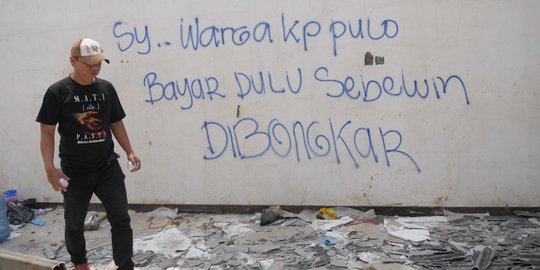 Sy.. Warga kp pulo
Bayar DULU Sebelum
DIBONGKAR
M.A.T.I
( itu )
P.A.S.T.I